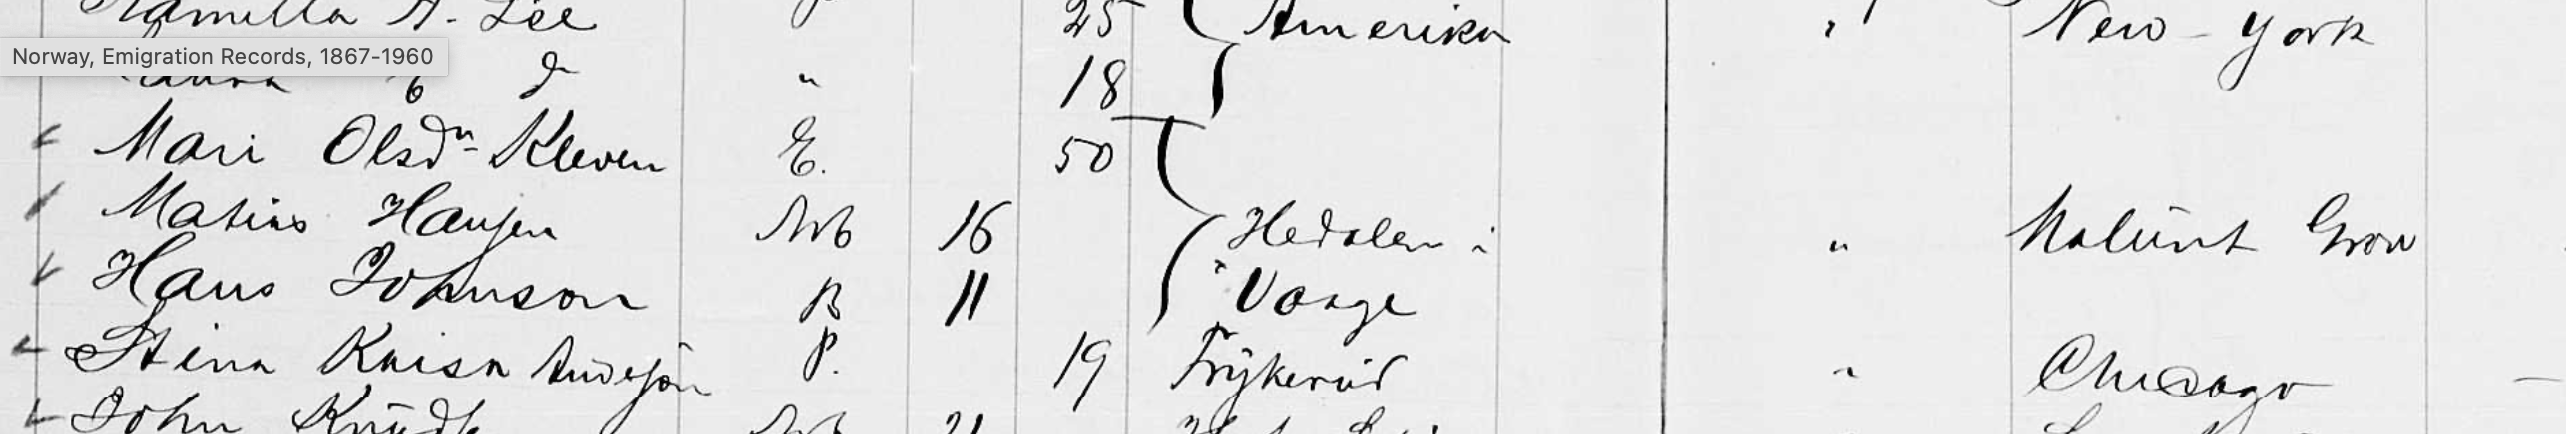 Kamilla A. Lee P 25 Amerika " New-York
Norway, Emigration Records, 1867-1960
" 18
Mari Olsdn- Kleven E. 50
Matias Hansen Arb 16 Hedalen i " Malünt Grow
Hans Johnson B 11 Vaage
Stina Kaisa Andersön P. 19 Frykerud " Chicago —
John Arb 21